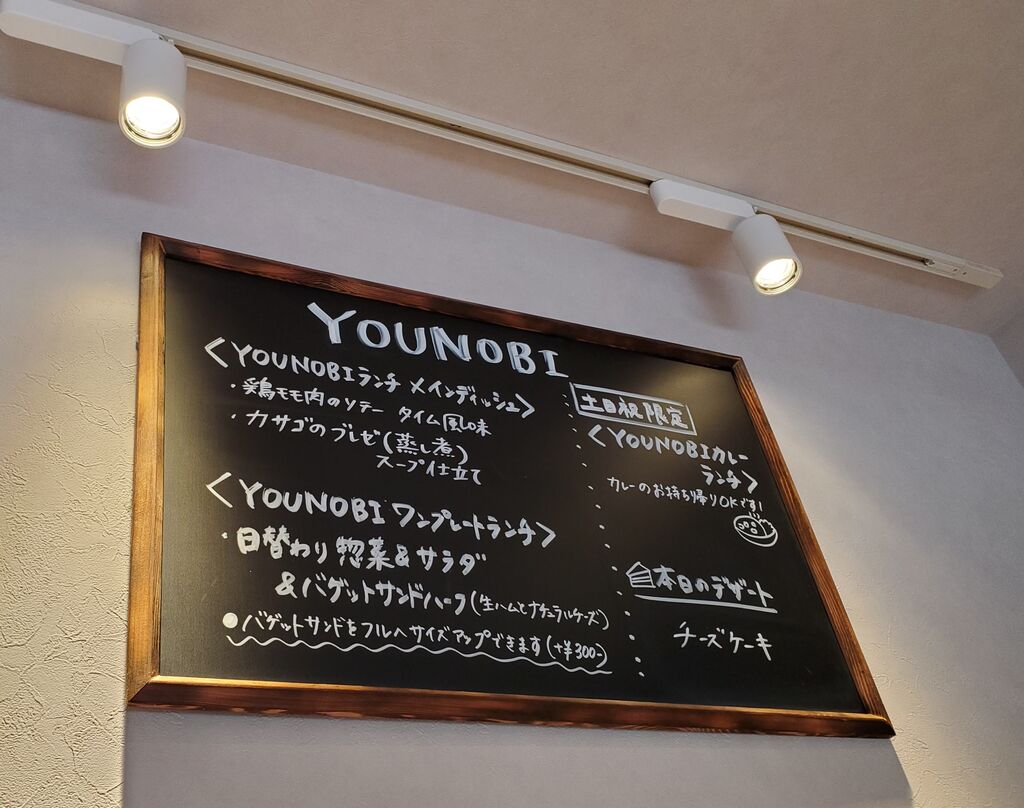 YOUNOBI
<YOUNOBIランチ メインディッシュ>
・鶏モモ肉のソテー タイム風味
・カサゴのブレゼ(蒸し煮)
スープ仕立て
<YOUNOBI ワンプレートランチ>
・日替わり惣菜&サラダ
&バゲットサンドハーフ(生ハムとナチュラルチーズ)
●バゲットサンドをフルへサイズアップできます(+¥300-)
土日祝限定
<YOUNOBIカレー
ランチ>
カレーのお持ち帰りOKです!
本日のデザート
チーズケーキ